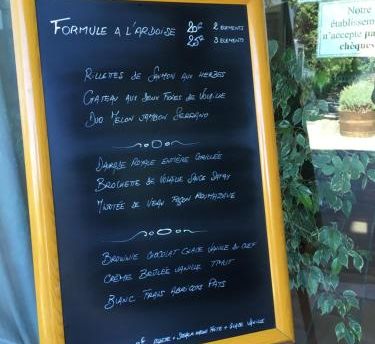 FORMULE A L'ARDOISE 20€ 2 ELEMENTS
25€ 3 ELEMENTS
RILLETTES DE SAUMON AUX HERBES
GATEAU AUX DEUX FOIES DE VOLAILLE
DUO MELON JAMBON SERRANO
DAURADE ROYALE ENTIÈRE GRILLÉE
BROCHETTE DE VOLAILLE SAUCE SATAY
MIJOTÉE DE VEAU FAÇON
BROWNIE CHOCOLAT GLACE VANILLE DU CHEF
CRÈME BRÛLÉE VANILLE
BLANC ABRICOTS
+ GLACE VANILLE
Notre
établissement
n'accepte pas
chèques